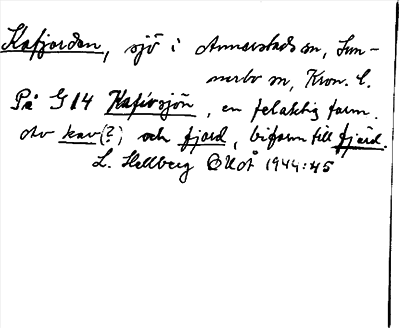 Kafjorden, sjö i Annerstads sn, Sun-
nerbo sn, Kron. l.
På G 14 Kafivsjön, en felaktig form.
Av kav(?) och fjord, biform till fjärd.
L. Hellberg 1944:45